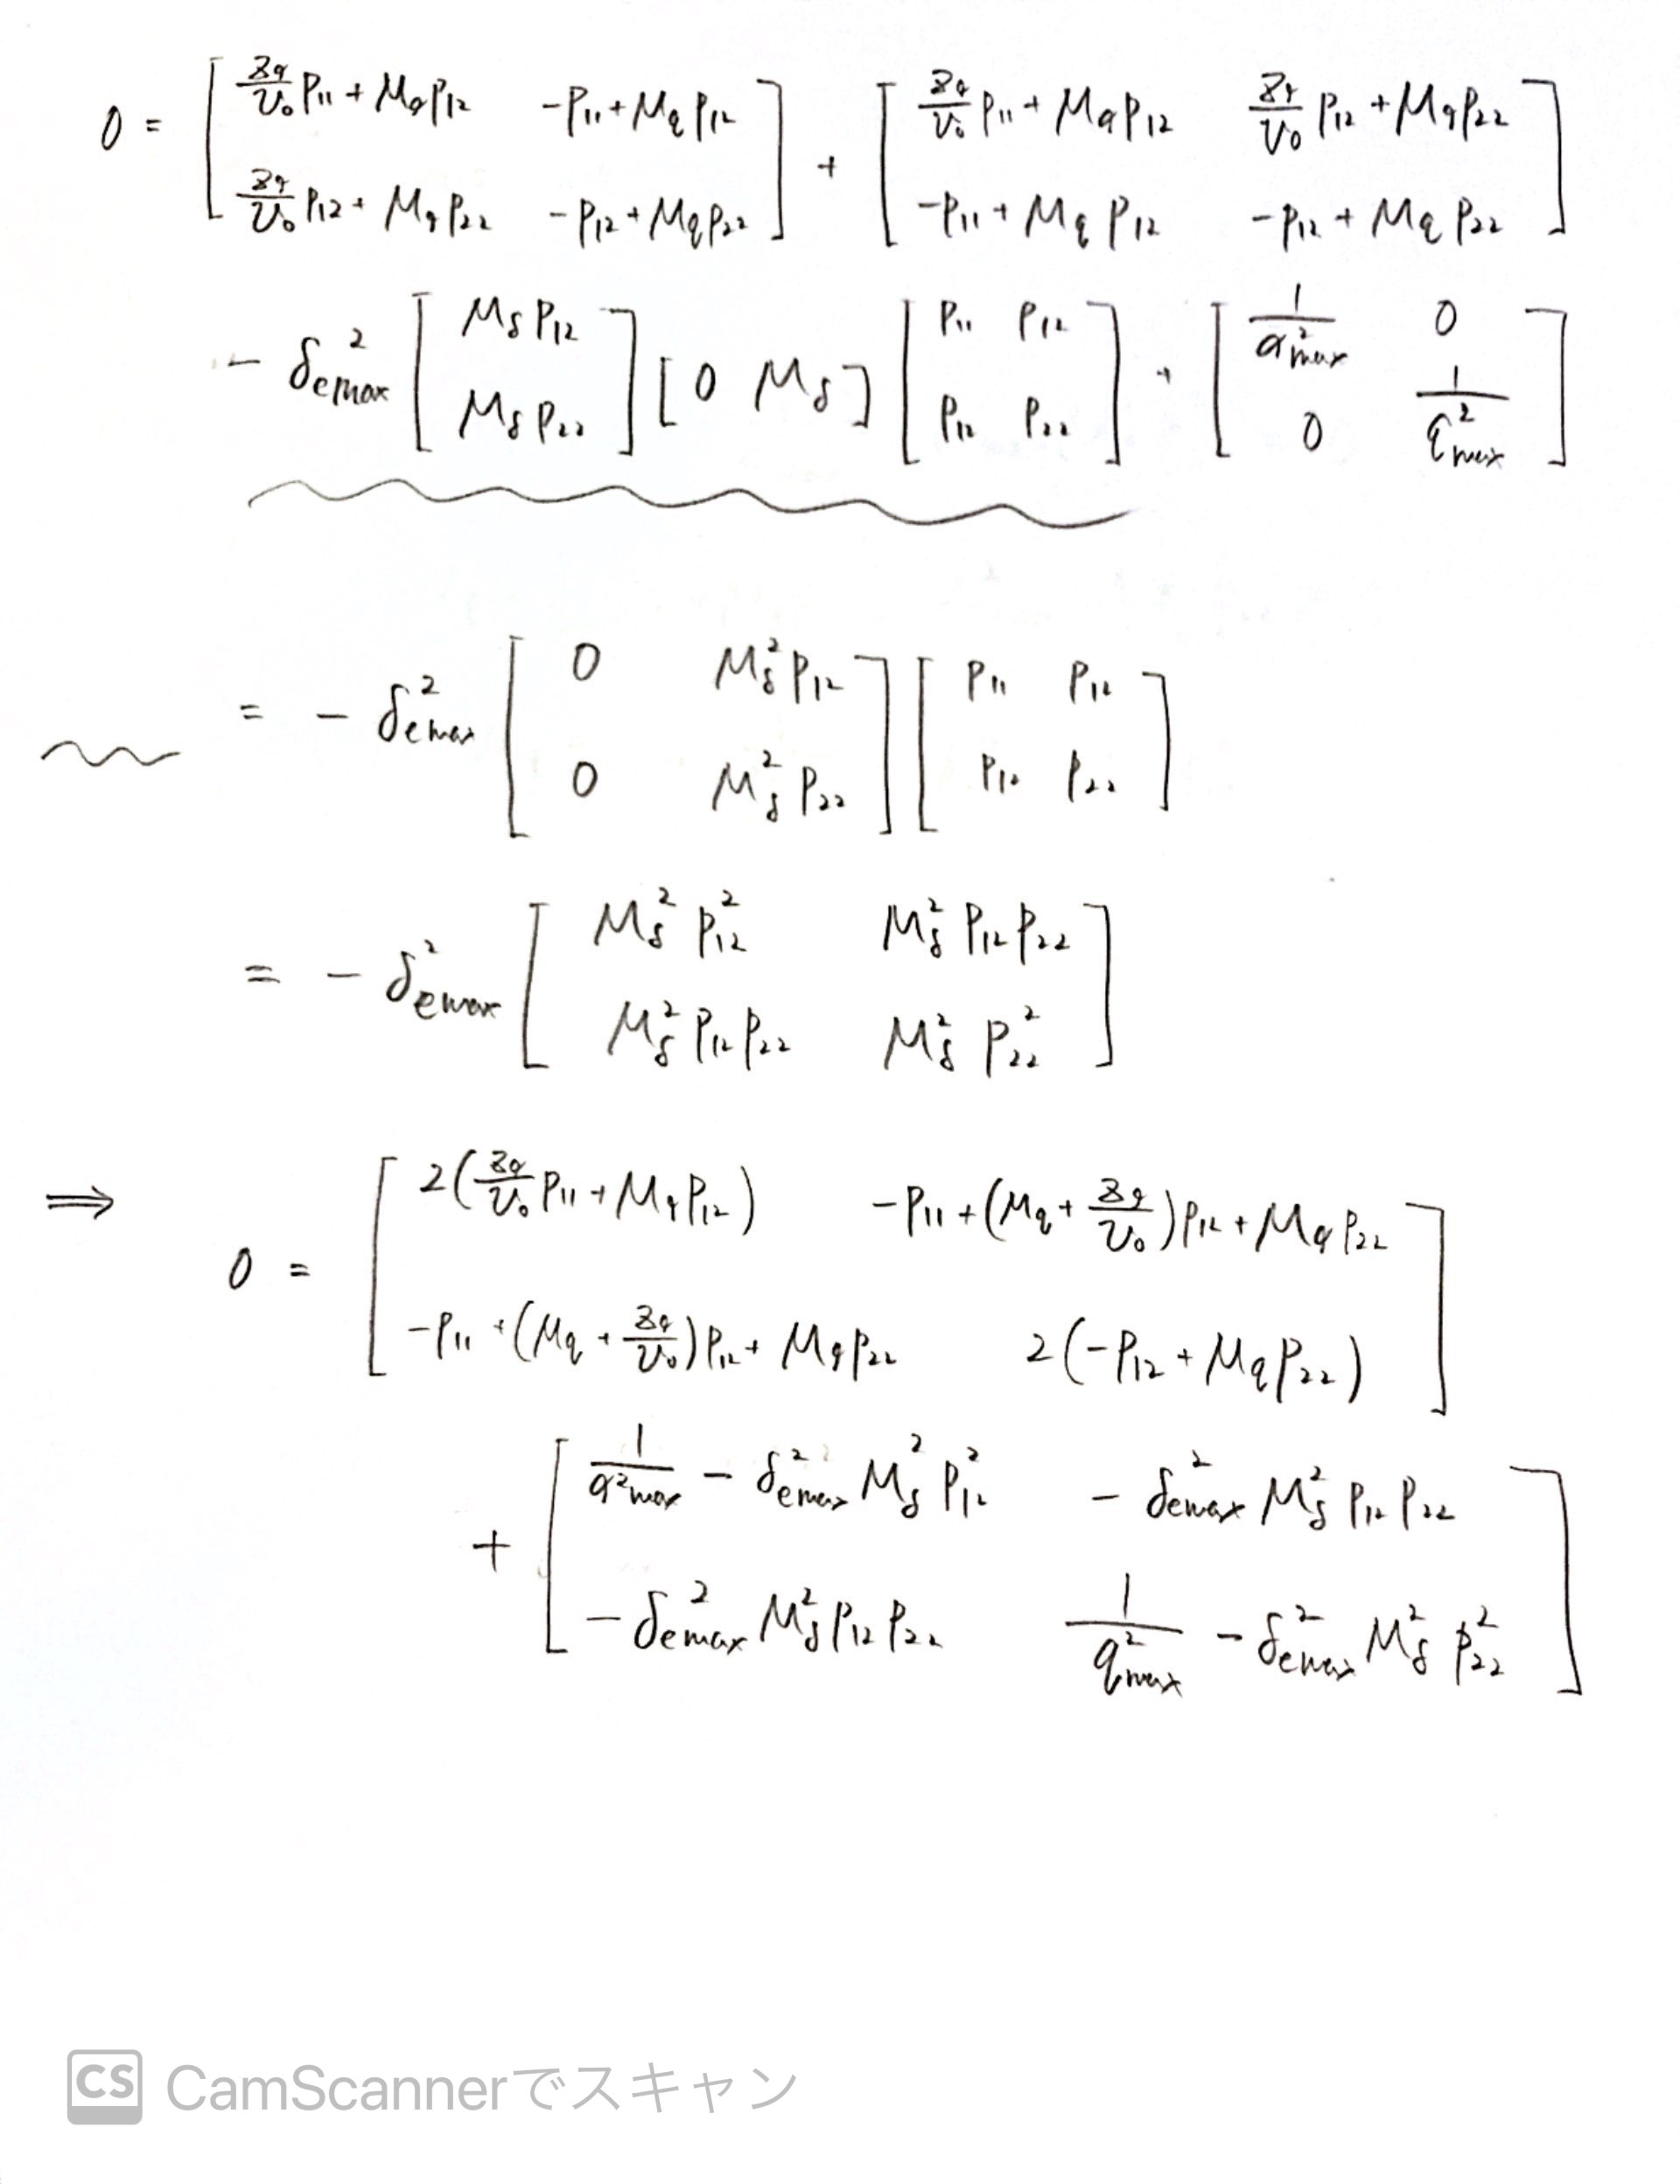 0 = [ Zα/U₀ p₁₁ + Mα p₁₂   -p₁₁ + Mq p₁₂ ; Zα/U₀ p₁₂ + Mα p₂₂   -p₁₂ + Mq p₂₂ ] + [ Zα/U₀ p₁₁ + Mα p₁₂   Zα/U₀ p₁₂ + Mα p₂₂ ; -p₁₁ + Mq p₁₂   -p₁₂ + Mq p₂₂ ]
- δemax² [ Mδ p₁₂ ; Mδ p₂₂ ] [ 0 Mδ ] [ p₁₁ p₁₂ ; p₁₂ p₂₂ ] + [ 1/α²max 0 ; 0 1/q²max ]
= - δ²emax [ 0 Mδ² p₁₂ ; 0 Mδ² p₂₂ ] [ p₁₁ p₁₂ ; p₁₂ p₂₂ ]
= - δ²emax [ Mδ² p₁₂² Mδ² p₁₂ p₂₂ ; Mδ² p₁₂ p₂₂ Mδ² p₂₂² ]
⇒ 0 = [ 2(Zα/U₀ p₁₁ + Mα p₁₂)   -p₁₁ + (Mq + Zα/U₀) p₁₂ + Mα p₂₂ ; -p₁₁ + (Mq + Zα/U₀) p₁₂ + Mα p₂₂   2(-p₁₂ + Mq p₂₂) ]
+ [ 1/α²max - δ²emax Mδ² p₁₂²   - δ²emax Mδ² p₁₂ p₂₂ ; - δ²emax Mδ² p₁₂ p₂₂   1/q²max - δ²emax Mδ² p₂₂² ]
CS CamScannerでスキャン